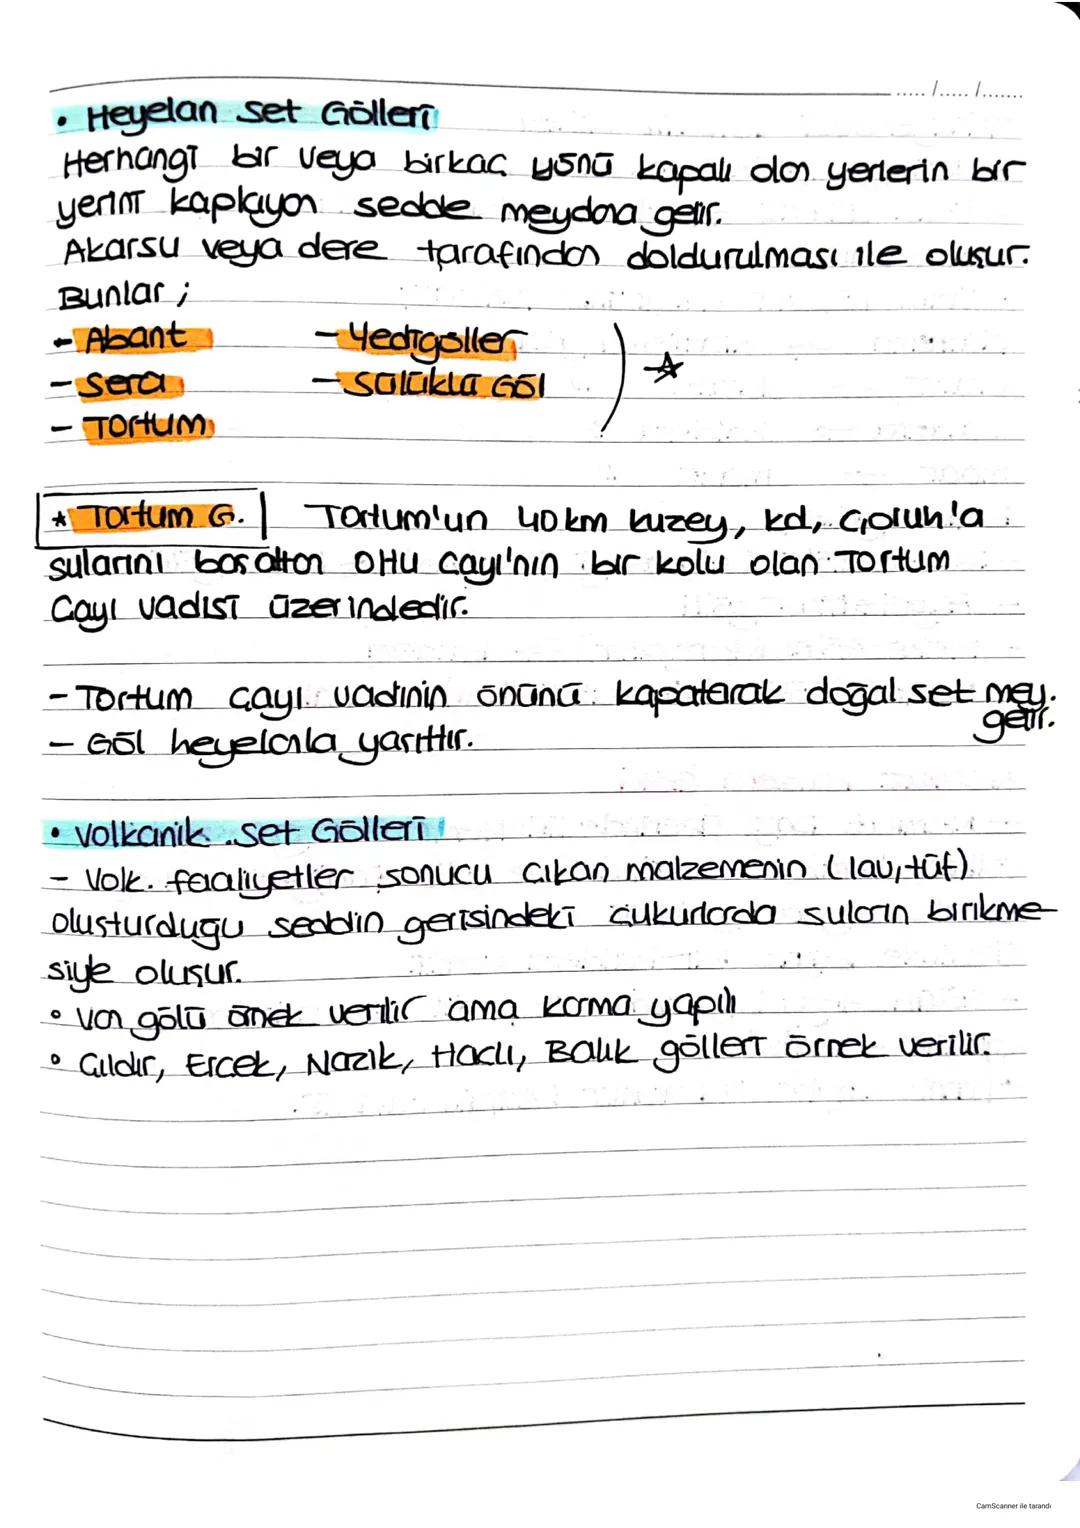 ..... /..... /.......
• Heyelan Set Gölleri
Herhangi bir veya birkaç yönü kapalı olan yerlerin bir
yerini kaplayan sedde meydana gelir.
Akarsu veya dere tarafından doldurulması ile oluşur.
Bunlar ;
- Abant - Yedigöller
- Sera - Sülüklü Göl
- Tortum
* Tortum G. Tortum'un 40 km kuzey, kd, Çoruh'a
sularını boşaltan OHU Çayı'nın bir kolu olan Tortum
Çayı vadisi üzerindedir.
- Tortum çayı vadinin önünü kapatarak doğal set mey.
gelir.
- Göl heyelanla yarıttır.
• Volkanik Set Gölleri
- Volk. faaliyetler sonucu çıkan malzemenin (lav, tüf)
oluşturduğu seddin gerisindeki çukurlarda suların birikme-
siyle oluşur.
° Van gölü örnek verilir ama karma yapılı
° Çıldır, Erçek, Nazik, Haçlı, Balık gölleri örnek verilir.
CamScanner ile tarandı